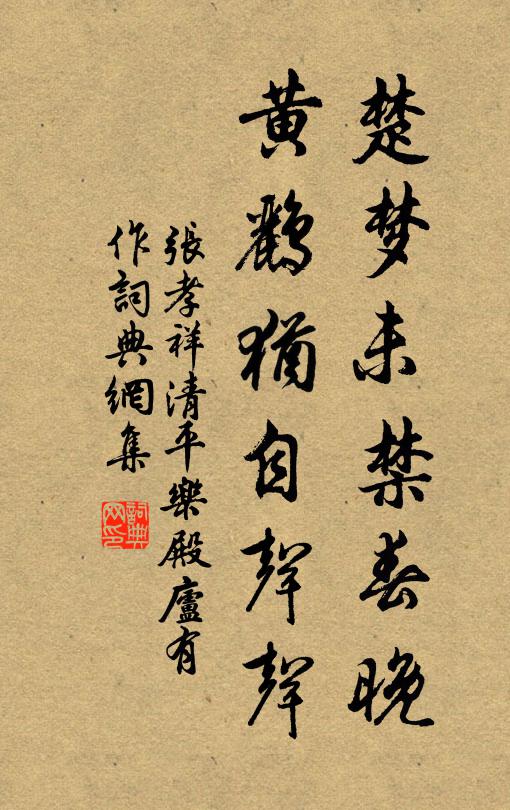 楚梦未禁春晚
黄鸝猶自聲聲
張孝祥清平樂殿廬有
作詞典網集
詞典
网印